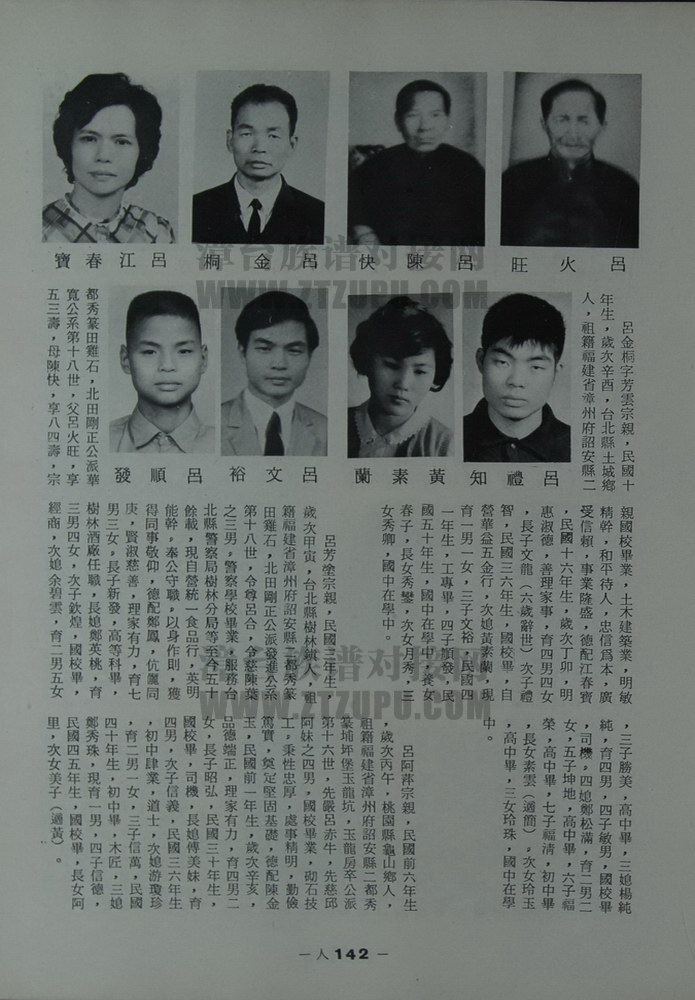 旺火呂
快陳呂
桐金呂
寶春江呂
知禮呂
蘭素黃
裕文呂
發順呂
漳台族谱对接网
WWW.ZTZUPU.COM
呂金桐字芳雲宗親，民國十
年生，歲次辛酉，台北縣土城鄉
人，祖籍福建省漳州府詔安縣二
都秀篆田雞石，北田剛正公派華
寬公系第十八世，父呂火旺，享
五三壽，母陳快，享八四壽，宗
親國校畢業，土木建築業，明敏
精幹，和平待人，忠信爲本，廣
受信賴，事業隆盛，德配江春寶
，民國十六年生，歲次丁卯，明
惠淑德，善理家事，育四男四女
，長子文龍（六歲辭世）次子禮
智，民國三六年生，國校畢，自
營華益五金行，次媳黃素蘭，現
育一男一女，三子文裕，民國四
一年生，工專畢，四子順發，民
國五十年生，國中在學中，養女
春子，長女秀鑾，次女月秀，三
女秀卿，國中在學中。
呂芳塗宗親，民國三年生，
歲次甲寅，台北縣樹林鎮人，祖
籍福建省漳州府詔安縣二都秀篆
田雞石，北田剛正公派發進公系
第十八世，令尊呂合，令慈陳葉
之三男，警察學校畢業，服務台
北縣警察局樹林分局等至今五十
餘載，現自營統一食品行，英明
能幹，奉公守職，以身作則，獲
得同事敬仰，德配鄭鳳，伉儷同
庚，賢淑慈善，理家有力，育七
男三女，長子新發，高等科畢，
樹林酒廠任職，長媳鄭英桃，育
三男四女，次子欽煌，國校畢，
經商，次媳余碧雲，育二男五女
，三子勝美，高中畢，三媳楊純
純，育四男，四子敏男，國校畢
，司機，四媳鄭松滿，育二男二
女，五子坤地，高中畢，六子福
榮，高中畢，七子福淸，初中畢
，長女素雲（適簡），次女玲玉
，高中畢，三女玲珠，國中在學
中。
呂阿萍宗親，民國前六年生
，歲次丙午，桃園縣龜山鄉人，
祖籍福建省漳州府詔安縣二都秀
篆埔坪堡玉龍坑，玉龍房卒公派
第十六世，先嚴呂赤牛，先慈邱
阿妹之四男，國校畢業，砌石技
工，秉性忠厚，處事精明，勤儉
篤實，奠定堅固基礎，德配陳金
玉，民國前一年生，歲次辛亥，
品德端正，理家有力，育四男二
女，長子昭弘，民國三十年生，
國校畢，司機，長媳傅美妹，育
四男，次子信義，民國三六年生
，初中肄業，道士，次媳游瓊珍
，育二男一女，三子信萬，民國
四十年生，初中畢，木匠，三媳
鄭秀珠，現育一男，四子信德，
民國四五年生，國校畢，長女阿
里，次女美子（適黃）。
－人142－